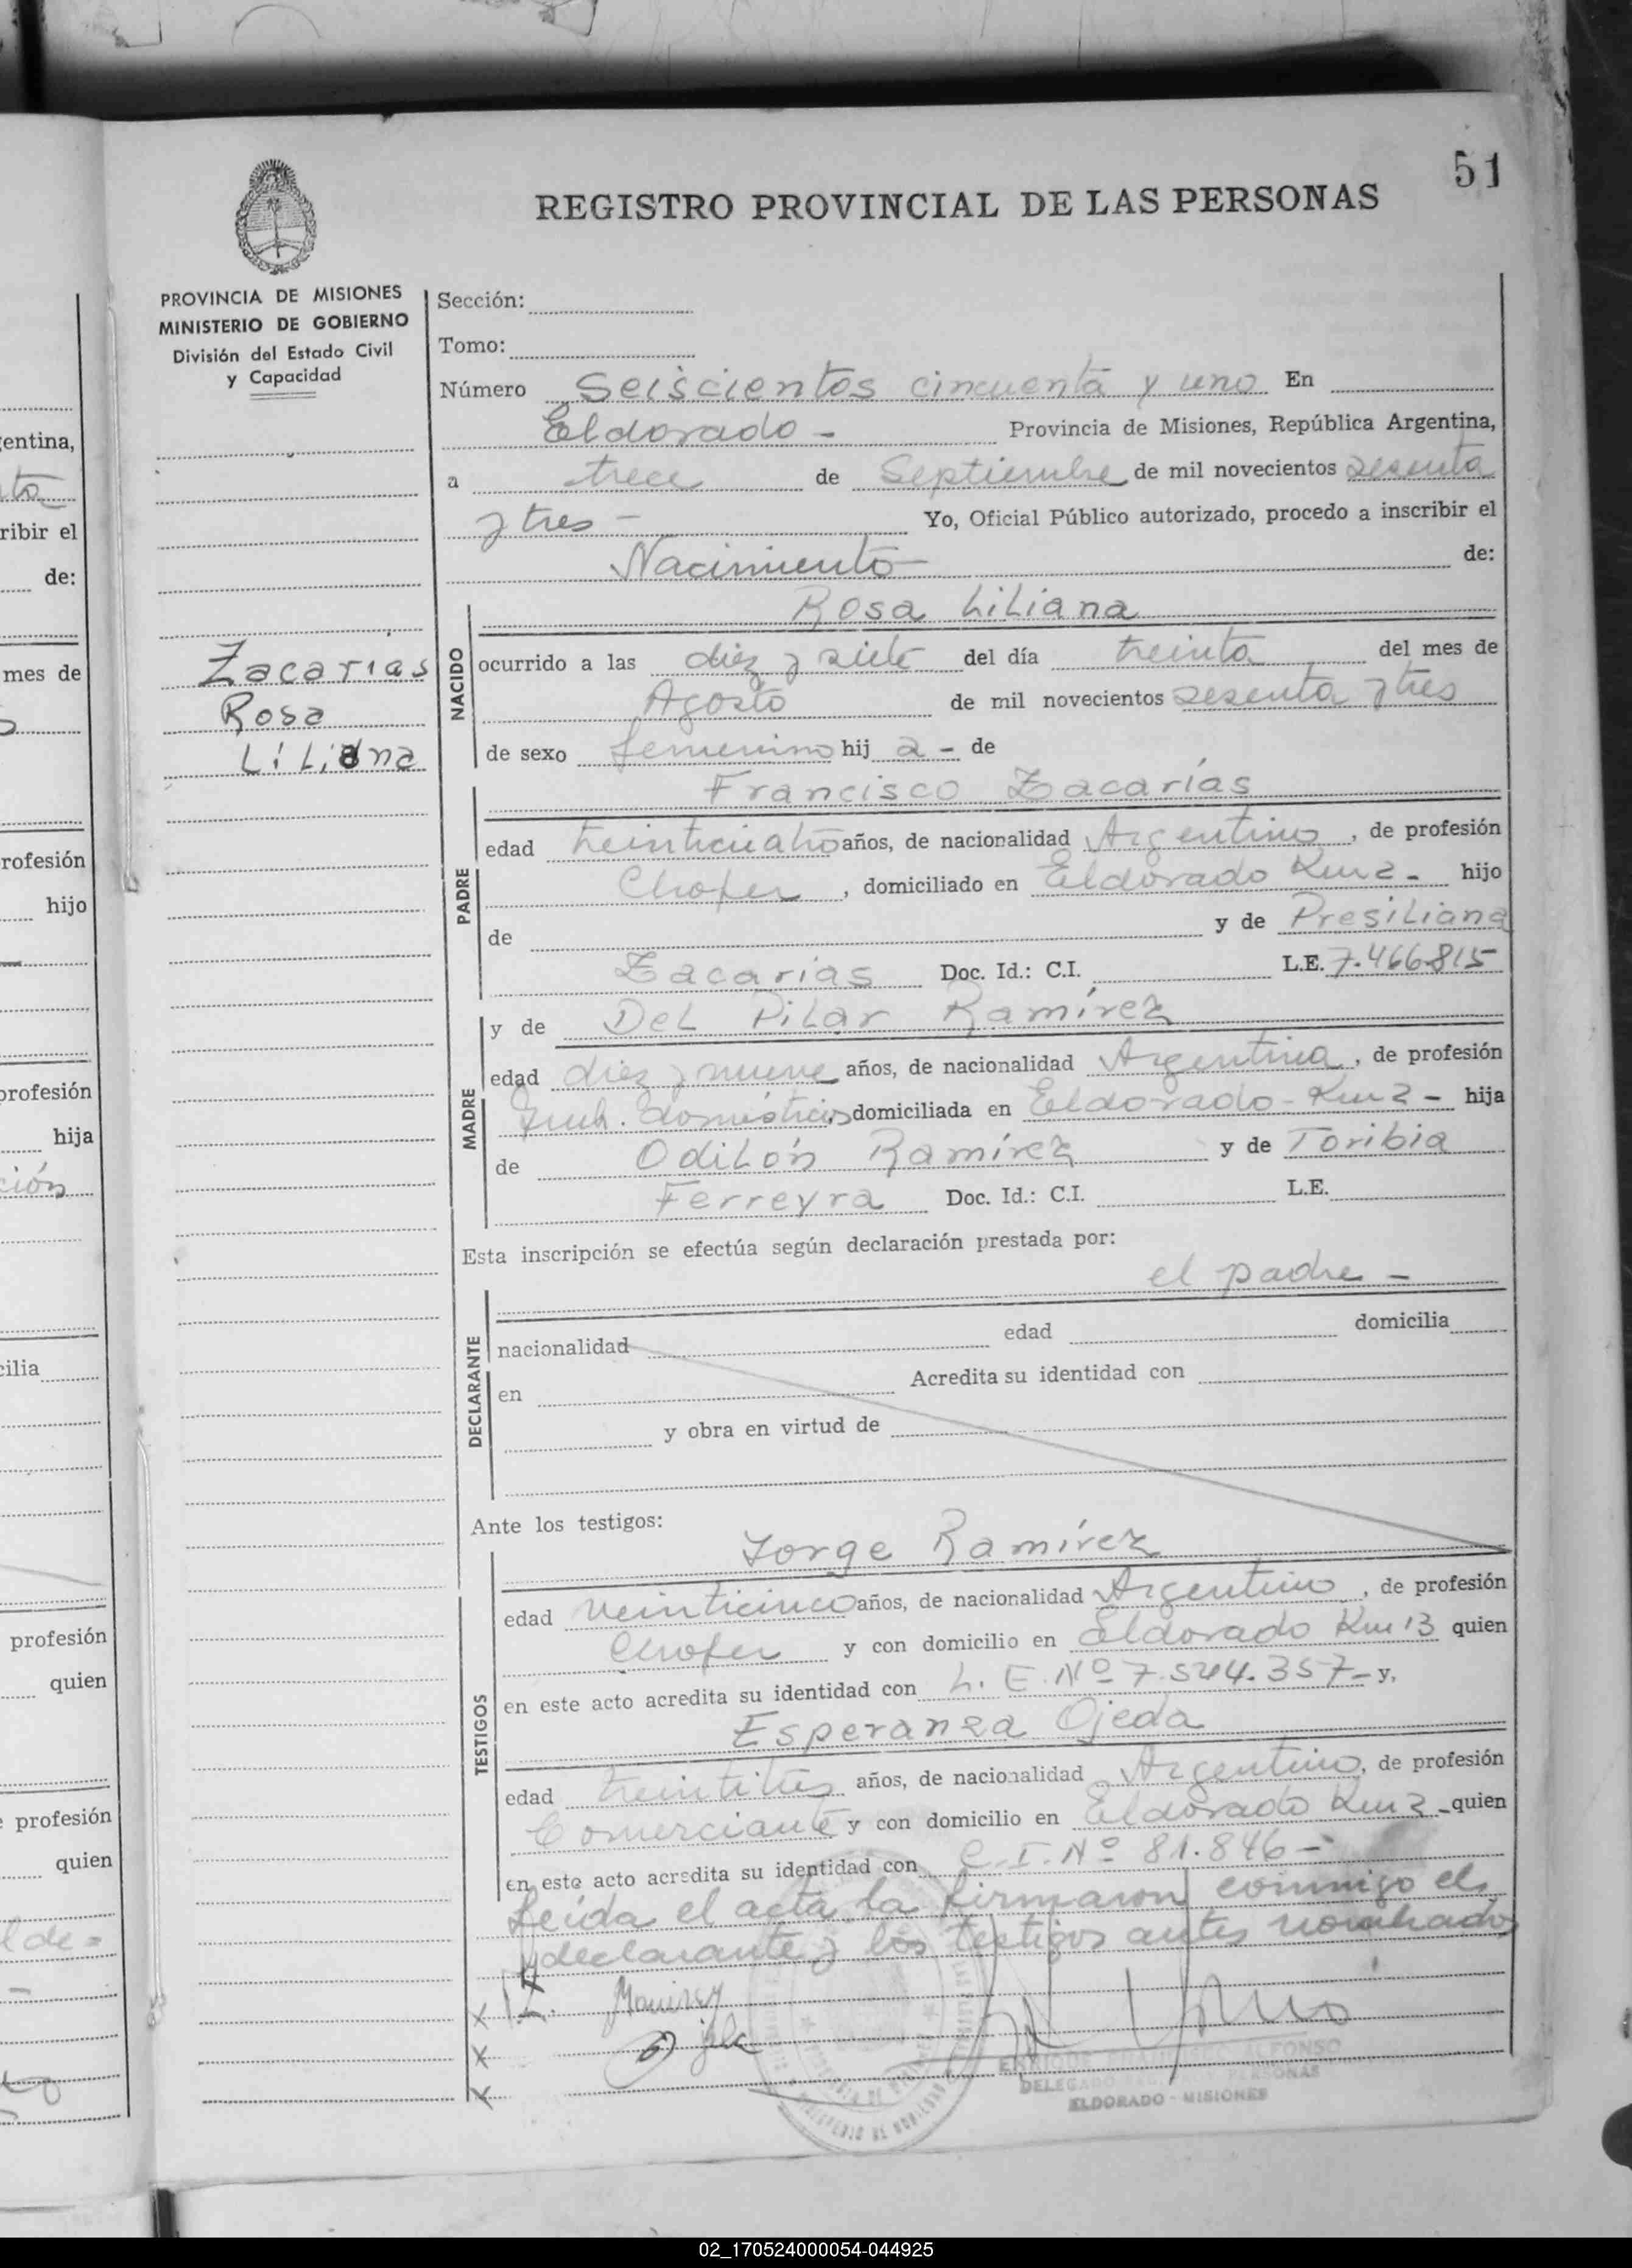 51
REGISTRO PROVINCIAL DE LAS PERSONAS
PROVINCIA DE MISIONES
MINISTERIO DE GOBIERNO
División del Estado Civil
y Capacidad
Zacarias
Rosa
Liliana
Sección:
Tomo:
Número Seiscientos cincuenta y uno En
Eldorado - Provincia de Misiones, República Argentina,
a trece de Septiembre de mil novecientos sesenta
y tres - Yo, Oficial Público autorizado, procedo a inscribir el
Nacimiento de:
NACIDO
Rosa Liliana
ocurrido a las diez y siete del día treinta del mes de
Agosto de mil novecientos sesenta y tres
de sexo femenino hij a - de
PADRE
Francisco Zacarías
edad treinticuatro años, de nacionalidad Argentino, de profesión
Chofer, domiciliado en Eldorado Km 2 - hijo
de y de Presiliana
Zacarias Doc. Id.: C.I. L.E. 7.466.815
MADRE
y de Del Pilar Ramírez
edad diez y nueve años, de nacionalidad Argentina, de profesión
domésticas domiciliada en Eldorado - Km 2 - hija
de Odilón Ramírez y de Toribia
Ferreyra Doc. Id.: C.I. L.E.
Esta inscripción se efectúa según declaración prestada por:
el padre -
DECLARANTE
nacionalidad edad domicilia
en Acredita su identidad con
y obra en virtud de
Ante los testigos:
TESTIGOS
Jorge Ramírez
edad veinticinco años, de nacionalidad Argentino, de profesión
Chofer y con domicilio en Eldorado Km 13 quien
en este acto acredita su identidad con L. E. Nº 7.544.357 - y,
Esperanza Ojeda
edad treintitres años, de nacionalidad Argentino, de profesión
Comerciante y con domicilio en Eldorado Km 2 - quien
en este acto acredita su identidad con C. I. Nº 81.846 -
Leída el acta la firmaron conmigo el
declarante y los testigos antes nombrados
X
X
X
ENRIQUE ALFONSO
DELEGADO PERSONAS
ELDORADO - MISIONES
entina,
ribir el
de:
mes de
rofesión
hijo
profesión
hija
ción
cilia
profesión
quien
profesión
quien
02_170524000054-044925